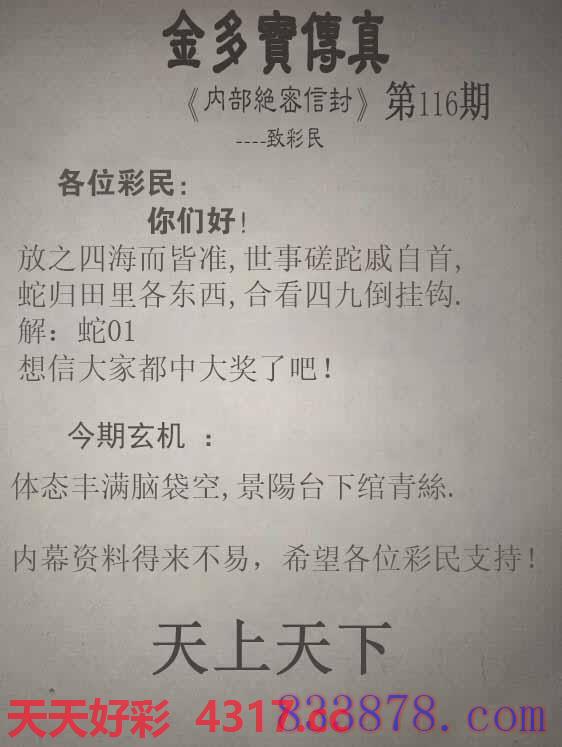 金多寶傳真
《内部絕密信封》第116期
----致彩民
各位彩民:
你们好!
放之四海而皆准,世事磋跎戚自首,
蛇归田里各东西,合看四九倒挂钩.
解: 蛇01
想信大家都中大奖了吧!
今期玄机 :
体态丰满脑袋空,景陽台下绾青絲.
内幕资料得来不易，希望各位彩民支持!
天上天下
天天好彩 4317.cc
833878.com